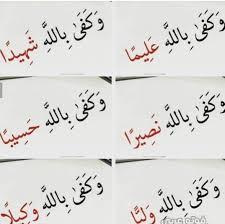 وَكَفَىٰ بِاللَّهِ عَلِيمًا
وَكَفَىٰ بِاللَّهِ شَهِيدًا
وَكَفَىٰ بِاللَّهِ نَصِيرًا
وَكَفَىٰ بِاللَّهِ حَسِيبًا
وَكَفَىٰ بِاللَّهِ وَلِيًّا
وَكَفَىٰ بِاللَّهِ وَكِيلًا
فوتو عربي